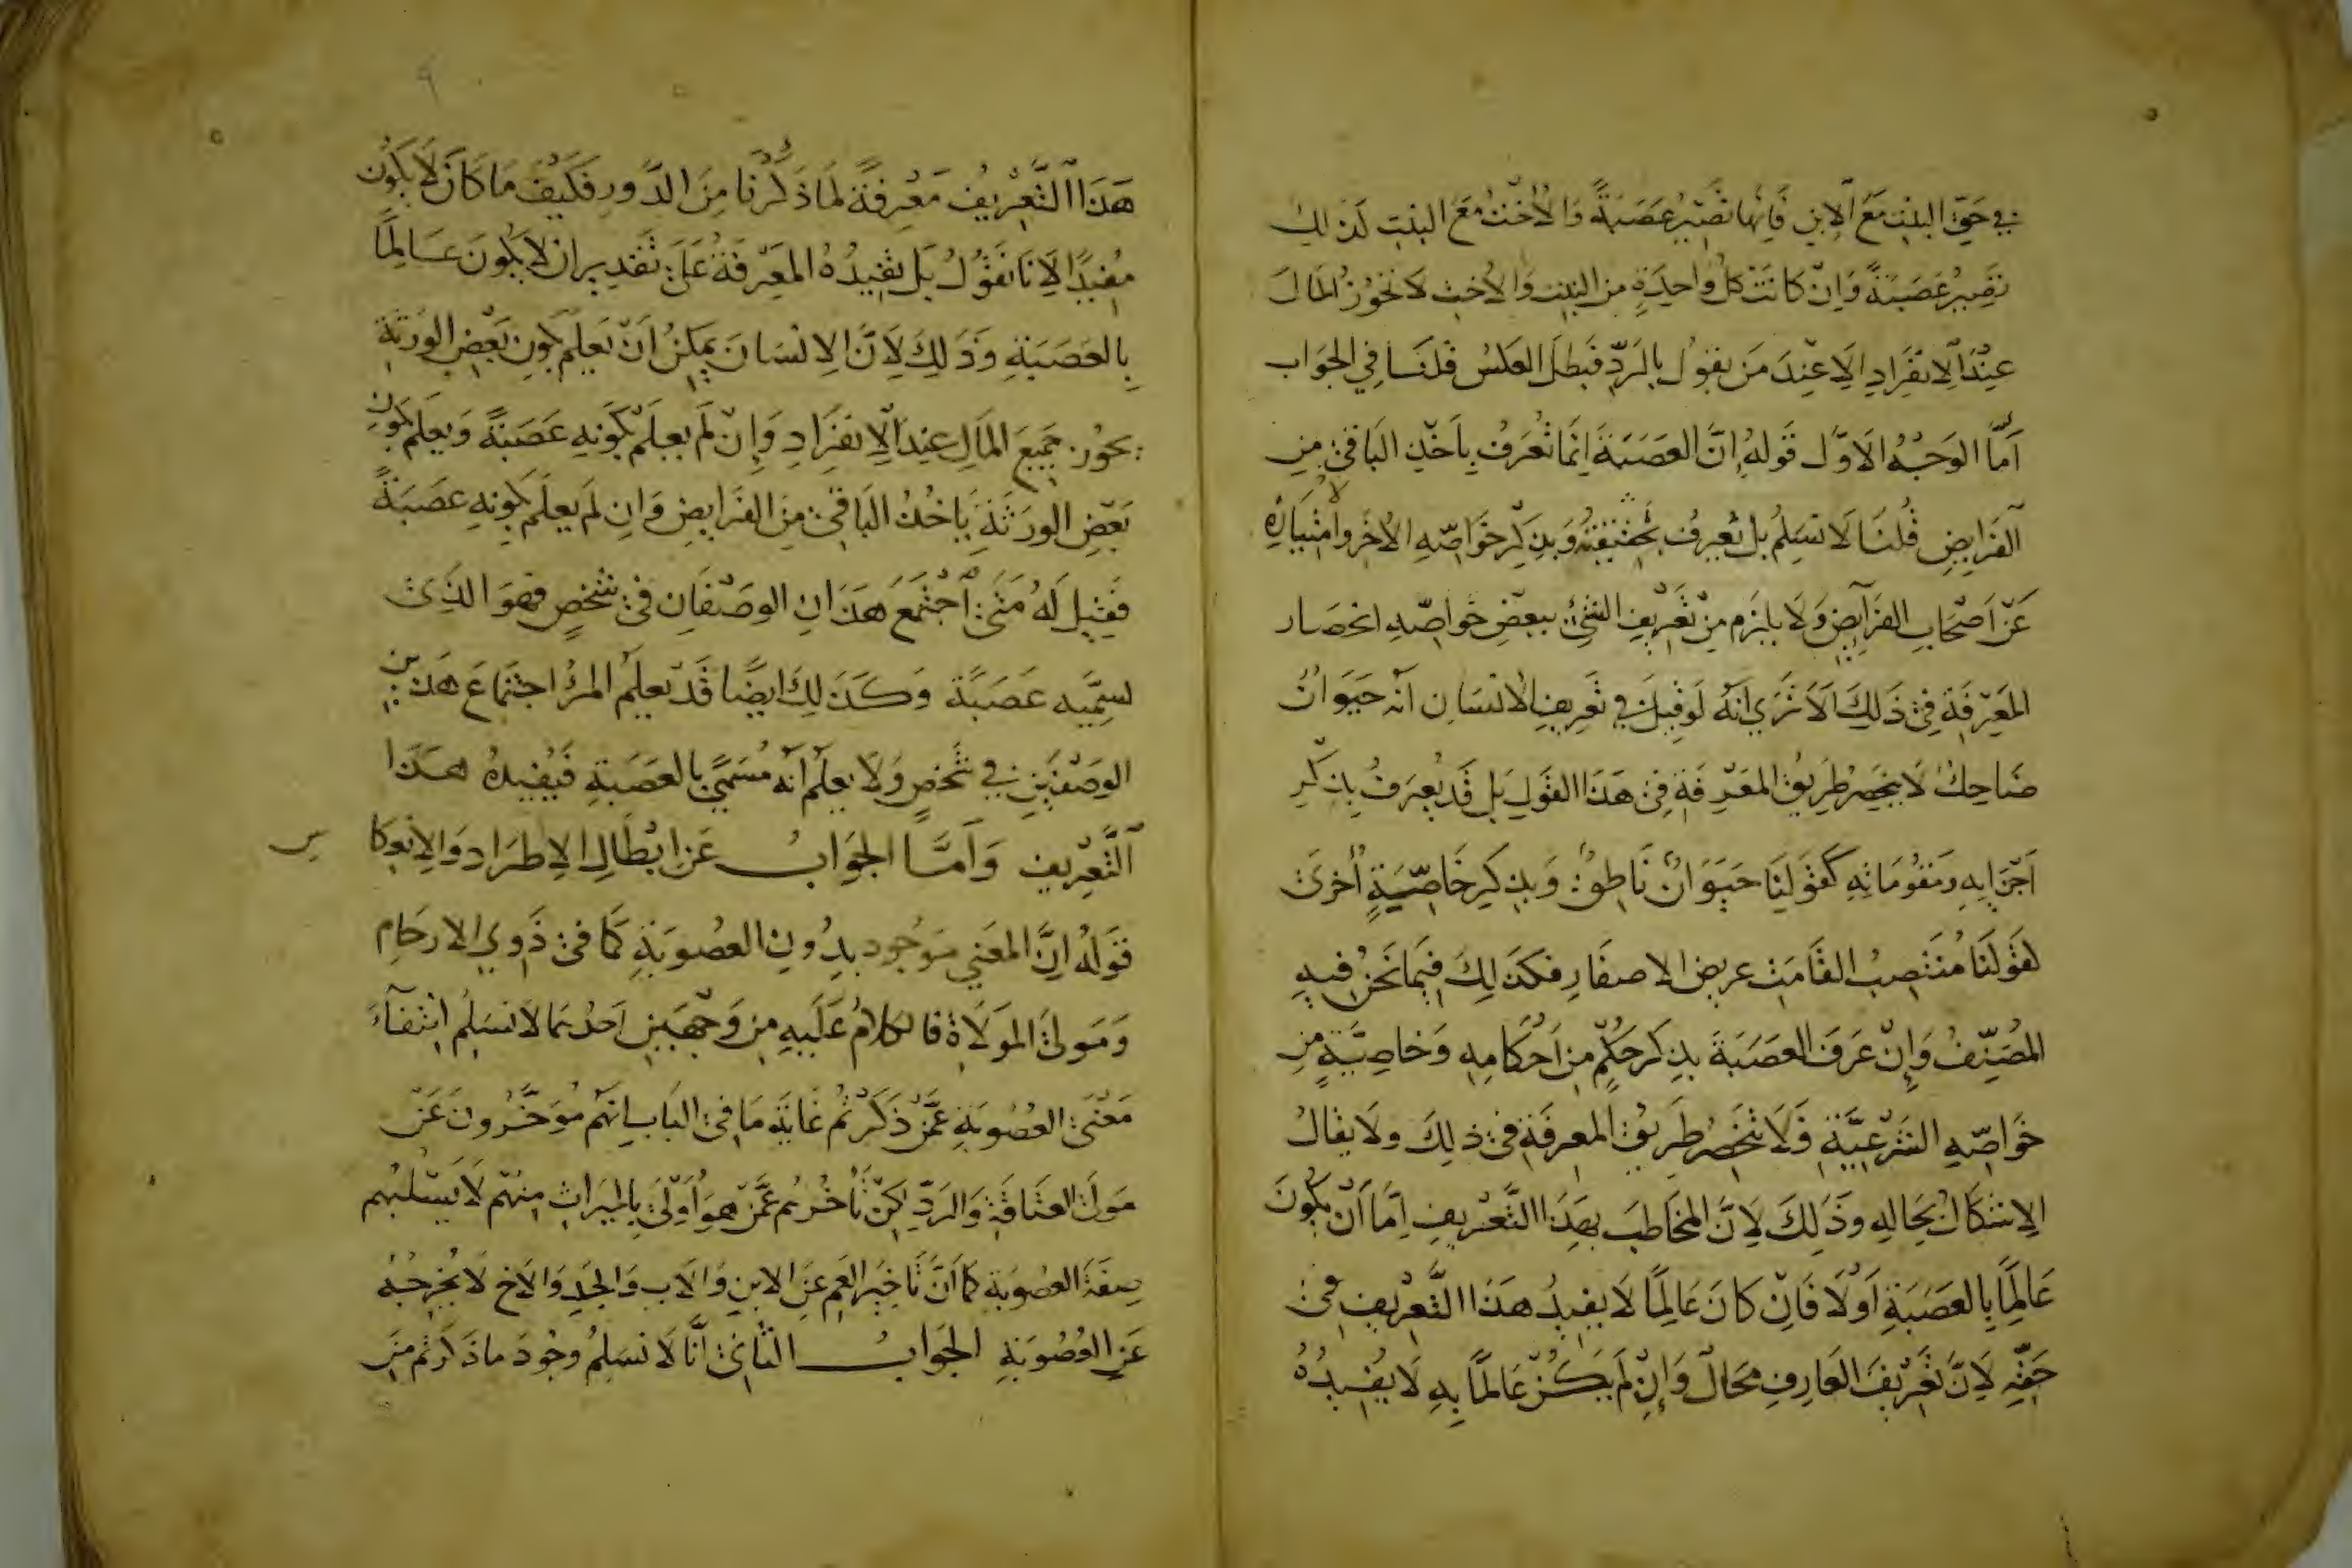 في حَقِّ البنتِ مَعَ الابنِ فَإنها تصيرُ عَصَبَةً وَالاُخْتُ مَعَ البنتِ كذلك
تصيرُ عَصَبَةً وَإنْ كانَتْ كلُّ وَاحِدَةٍ من البنت وَالاُختِ لا تحوزُ المال
عِنْدَ الاِنفرَادِ اِلا عِنْدَ مَن يقولُ بِالرَدِّ فَبطلَ العكسُ قلنَا في الجوَاب
اَمَّا الوَجْهُ الاَوَّل قَولهُ اِنَّ العصَبَةَ اِنَّمَا تُعرَفُ بِاَخْذِ البَاقي مِن
الفَرايضِ قُلنَا لا نُسَلِّمُ بل تُعرفُ بحقيقته وَبذكْر خوَاصِّهِ الاُخَر وامتيازِهِ
عَنْ اَصْحَابِ الفَرَايضِ وَلا يلزَم مِنْ تَعْرِيفِ الشئ ببعضِ خواصِّهِ انحصَار
المعَرفَةِ في ذَلِكَ اَلا تَرَي اَنَّهُ لَو قيلَ في تَعريفِ الانسَان اَنّه حَيَوَانٌ
ضَاحِكٌ لا ينحصرُ طَريقُ المَعرفَةِ في هَذَا القَولِ بَل قَد يُعرَفُ بِذكْرِ
اَجْزَايِهِ وَمقُومَاتِهِ كَقَولِنَا حَيَوَانٌ نَاطِقٌ وَبذكر خَاصّيَةٍ اُخرَي
كقَولنَا مُنتَصِبُ القَامَت عريض الاصفار فكذَلِكَ فيمَا نَحنُ فيهِ
المُصَنِّفُ وَاِنْ عَرَّفَ العصَبَةَ بذكر حُكْمٍ مِن اَحْكامِهِ وَخاصِيَّةٍ مِن
خَوَاصِّهِ الشَرْعِيَّةِ فَلا تنحَصرُ طَريقُ المعرفَةِ في ذلِكَ ولا يقالُ
الاِشكَالُ بحَالِهِ وذَلِكَ لاِنَّ المخَاطبَ بهَذَا التَّعْريفِ اِمَّا اَنْ يكُونَ
عَالِمًا بِالعصَبَةِ اَوْلا فَاِنْ كانَ عَالِمًا لا يفيدُ هذَا التَّعْريفِ في
حَقِّهِ لاِنَّ تَعْريفَ العَارِفِ محَالٌ وَاِنْ لَم يَكُنْ عَالمًا بِهِ لا يُفيدُهُ
هَذَا التَّعْريفُ مَعْرِفَةً لمَا ذَكَرْنَا مِنَ الدَّورِ فكَيْفَ مَا كَانَ لا يكُون
مُفيدًا لاِنَا نَقُولُ بَل يفيدُهُ المعَرفَةَ عَلَي تَقدِيرِ ان لا يكُونَ عَالِمًا
بِالعَصَبَةِ وَذَلِكَ لاِنَّ الاِنسَانَ يمكِنُ اَنْ يَعلمَ كونَ بَعْضِ الوَرَثَةِ
يحُوز جَميعَ المَالِ عِندَ الاِنفرَادِ وَاِنْ لَم يعلَمْ كونه عَصَبَةً وَيعلَم كون
بَعْضِ الورَثَةِ يَاخُذُ البَاقي مِنَ الفَرايضِ وَان لَم يعلَم كونهِ عصَبَةً
فقيلَ لَهُ مَتَي اجْتَمعَ هَذَانِ الوصْفَانِ في شخصٍ فهوَ الذِي
نسمِّيه عَصَبَةً وَكَذَلِكَ ايضًا قَدْ يَعلَمُ المرُ اجتمَاعَ هَذين
الوصْفَينِ في شخصٍ وَلا يعلم اَنّه مُسَمًّي بالعَصَبَةِ فَيُفيدُهُ هَذَا
التَّعْريف وَاَمَّا الجوَابُ عَن ابْطَالِ الاِطرَادِ وَالاِنعِكا س
فقَولُهُ اِنَّ المعَني مَوجُود بِدُونِ العصُوبَةِ كمَا في ذَوي الارحَامِ
وَمَوليَ المَولاةِ فالكلامُ عَلَيهِ مِن وَجْهَينِ اَحَدُهما لا نسَلِّمُ انتفَآءَ
مَعْنَي العُصُوبَةِ عَمَّنْ ذَكَرْتُم غَايَةُ مَا في البَاب انَهُم مُوَخَّرُونَ عَنْ
مَولَي العتَاقَةِ وَالرَدِّ لكِنْ تَأخُرُهُم عَمَّنْ هُوَ اَولَي بِالميرَاثِ مِنهُم لا يَسْلُبُهم
صِفَةَ العصُوبَةِ كمَا اَنَّ تَاخيرَ العَم عَن الابنِ وَالاَب وَالجدِ وَالاَخِ لا يخرجُهُ
عَن العُصُوبَةِ الجوَابُ الثاني اَنَّا لا نسَلِّمُ وجُودَ ما ذَكَرْتم من